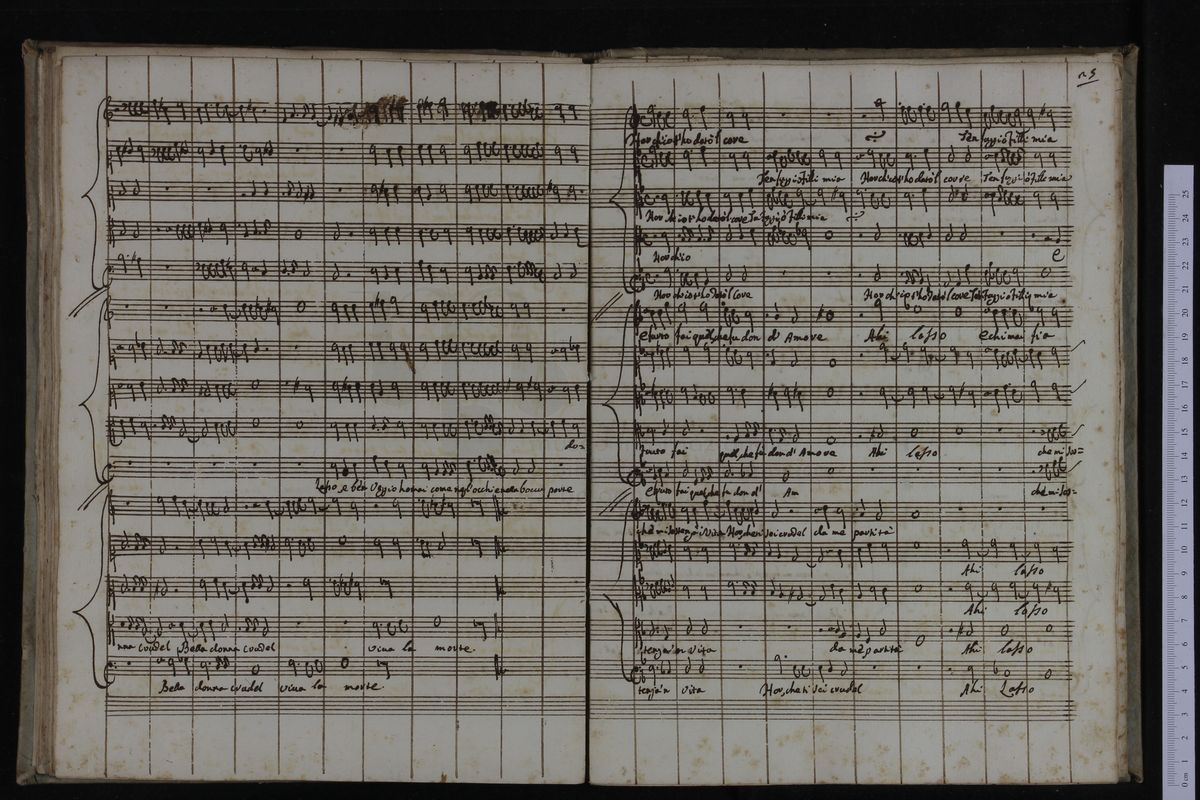 do=
Lasso, e ben Veggio homai come negl'occhi e nella bocca porte
nna crudel Bella donna crudel viua la morte.
Bella donna crudel viua la morte.
n.5
Hor ch'io t'ho dato'l core
Ten fuggi ò filli mia
Ten fuggi ò filli mia Hor ch'io t'ho dato'l core Ten fuggi ò filli mia
Hor ch'io t'ho dato'l core Ten fuggi ò filli mia
Hor ch'io
E
Hor ch'io t'ho dato'l core
Hor ch'io t'ho dato'l core Ten fuggi ò filli mia
E furto fai quel, che fu don d'Amore Ahi lasso e chi mai fia
furto fai quel, che fu don d'Amore Ahi lasso
che mi sos=
E furto fai quel, che fu don d' Am
che mi sos=
che mi sostenga in Vita Hor, che ti sei crudel da me partita
Ahi lasso
Ahi lasso
tenga in Vita da me partita Ahi lasso
tenga'n Vita Hor, che ti sei crudel Ahi Lasso
0 cm 1 2 3 4 5 6 7 8 9 10 11 12 13 14 15 16 17 18 19 20 21 22 23 24 25